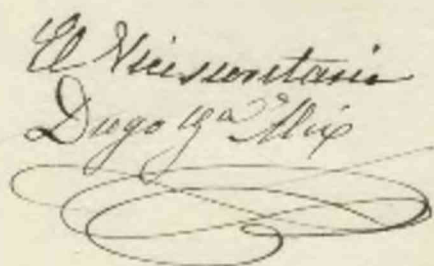 El Vicesecretario
Diego Ga Alix